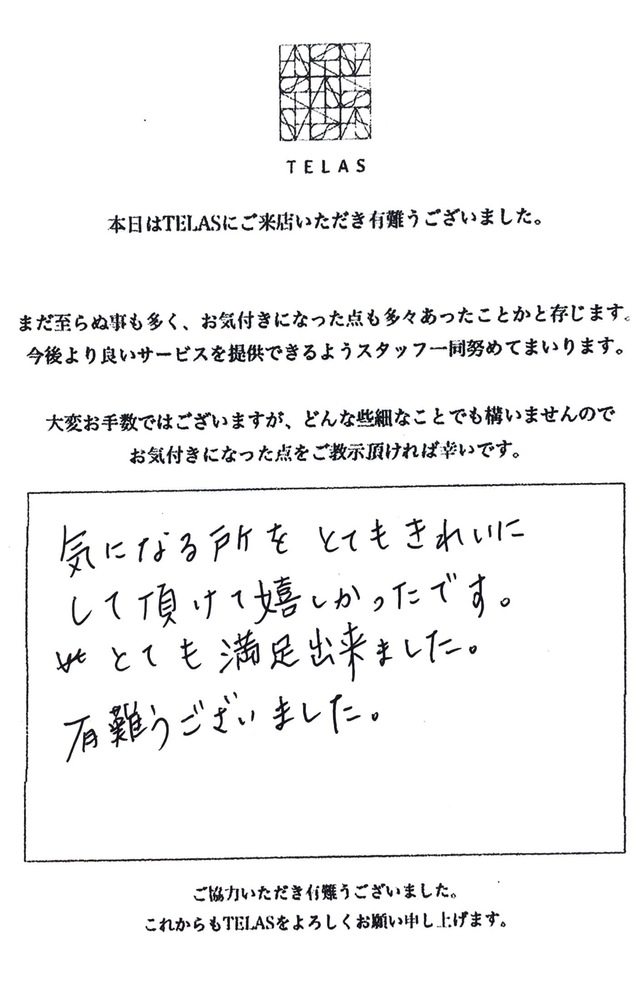 TELAS
本日はTELASにご来店いただき有難うございました。
まだ至らぬ事も多く、お気付きになった点も多々あったことかと存じます。
今後より良いサービスを提供できるようスタッフ一同努めてまいります。
大変お手数ではございますが、どんな些細なことでも構いませんので
お気付きになった点をご教示頂ければ幸いです。
気になる所をとてもきれいに
して頂けて嬉しかったです。
とても満足出来ました。
有難うございました。
ご協力いただき有難うございました。
これからもTELASをよろしくお願い申し上げます。